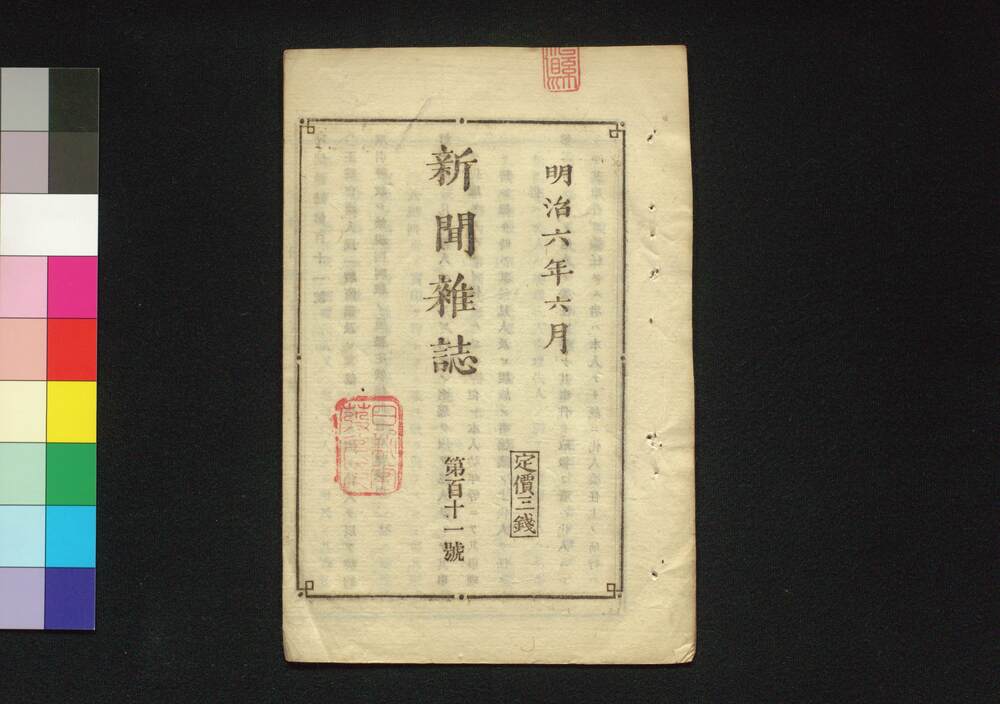 明治六年六月
定價三錢
新聞雜誌
第百十一號